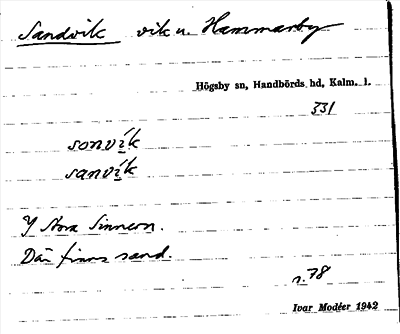 Sandvik vik u. Hammarby
Högsby sn, Handbörds hd, Kalm. l.
331
sonvik
sanvik
I Stora Sinnern.
Där finns sand.
s. 78
Ivar Modéer 1942